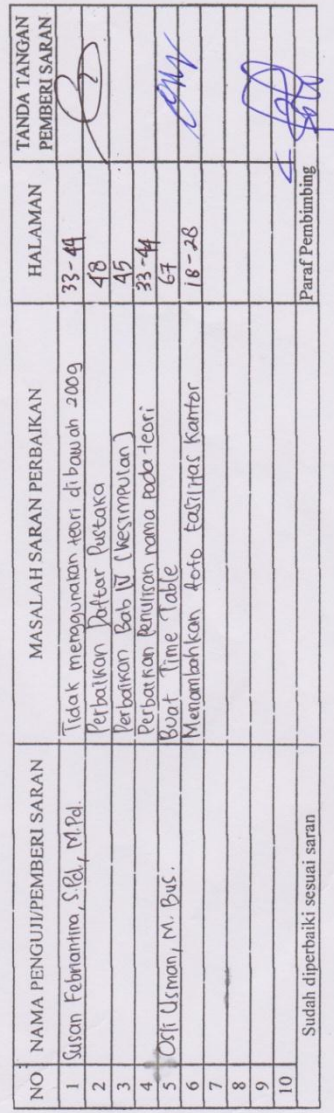 NO NAMA PENGUJI/PEMBERI SARAN MASALAH SARAN PERBAIKAN HALAMAN TANDA TANGAN PEMBERI SARAN
1 Susan Febriantina, S.Pd., M.Pd. Tidak menggunakan teori dibawah 2009 33-44
2 Perbaikan Daftar Pustaka 48
3 Perbaikan Bab IV (Kesimpulan) 45
4 Perbaikan Penulisan nama pada teori 33-44
5 Osly Usman, M. Bus. Buat Time Table 67
6 Menambahkan foto fasilitas Kantor 18-28
7
8
9
10
Sudah diperbaiki sesuai saran Paraf Pembimbing